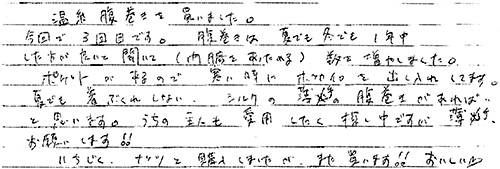 温泉腹巻きを買いました。
今回で3回目です。腹巻きは夏でも冬でも1年中
した方が良いと聞いて(内臓をあたためる)数を増やしました。
ポケットがあるので寒い時にホッカイロを出し入れしてます。
夏でも着ぶくれしない、シルクの薄手の腹巻きがあれば…
と思います。うちの主人も愛用したく探し中ですが薄手、
お願いします!!
いちじく、ナッツと購入しましたが、また買います!!おいしい